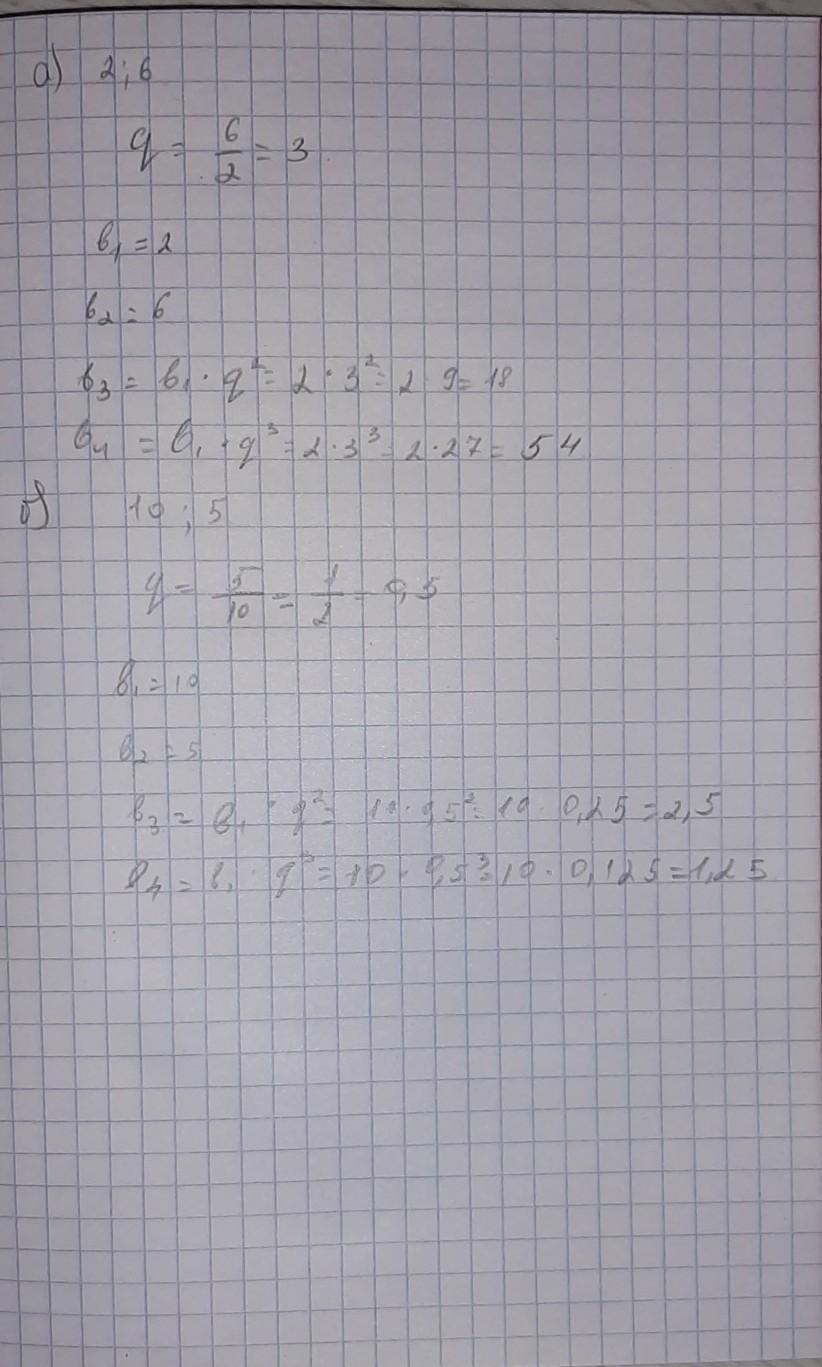 а) 2; 6
q = 6/2 = 3
b₁ = 2
b₂ = 6
b₃ = b₁ · q² = 2 · 3² = 2 · 9 = 18
b₄ = b₁ · q³ = 2 · 3³ = 2 · 27 = 54
б) 10 ; 5
q = 5/10 = 1/2 = 0,5
b₁ = 10
b₂ = 5
b₃ = b₁ · q² = 10 · 0,5² = 10 · 0,25 = 2,5
b₄ = b₁ · q³ = 10 · 0,5³ = 10 · 0,125 = 1,25